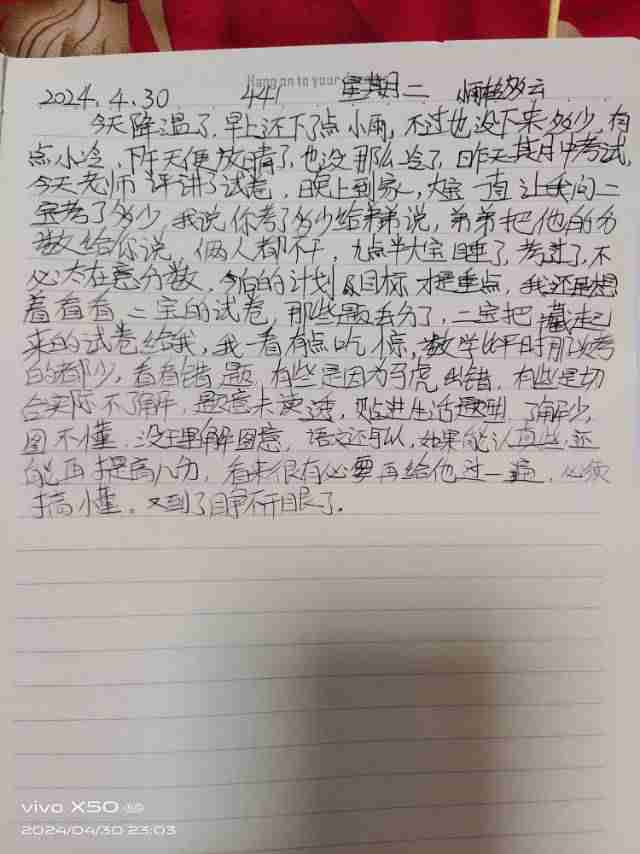 Hang on to your
2024.4.30 441 星期二 小雨转多云
今天降温了,早上还下了点小雨,不过也没下来多少,有
点小冷,下午天便放晴了,也没那么冷了,昨天其月中考试,
今天老师评讲了试卷,晚上到家,大宝一直让我问二
宝考了多少,我说你考了多少给弟弟说,弟弟把他的分
数给你说,俩人都不干,九点半大宝睡了,考过了,不
必太在意分数,今后的计划及目标才是重点,我还是想
着看看二宝的试卷,那些题丢分了,二宝把藏起
来的试卷给我,我一看有点吃惊,数学比平时那次考
的都少,看看错题,有些是因为马虎出错,有些是切
合实际不了解,题意未读透,贴进生活题型了解少,
图不懂,没王里解图意,语文还可以,如果能认真些,还
能再提高几分,看来很有必要再给他过一遍,必须
搞懂。又到了睁不开眼了。
vivo X50 5G
2024/04/30 23:03